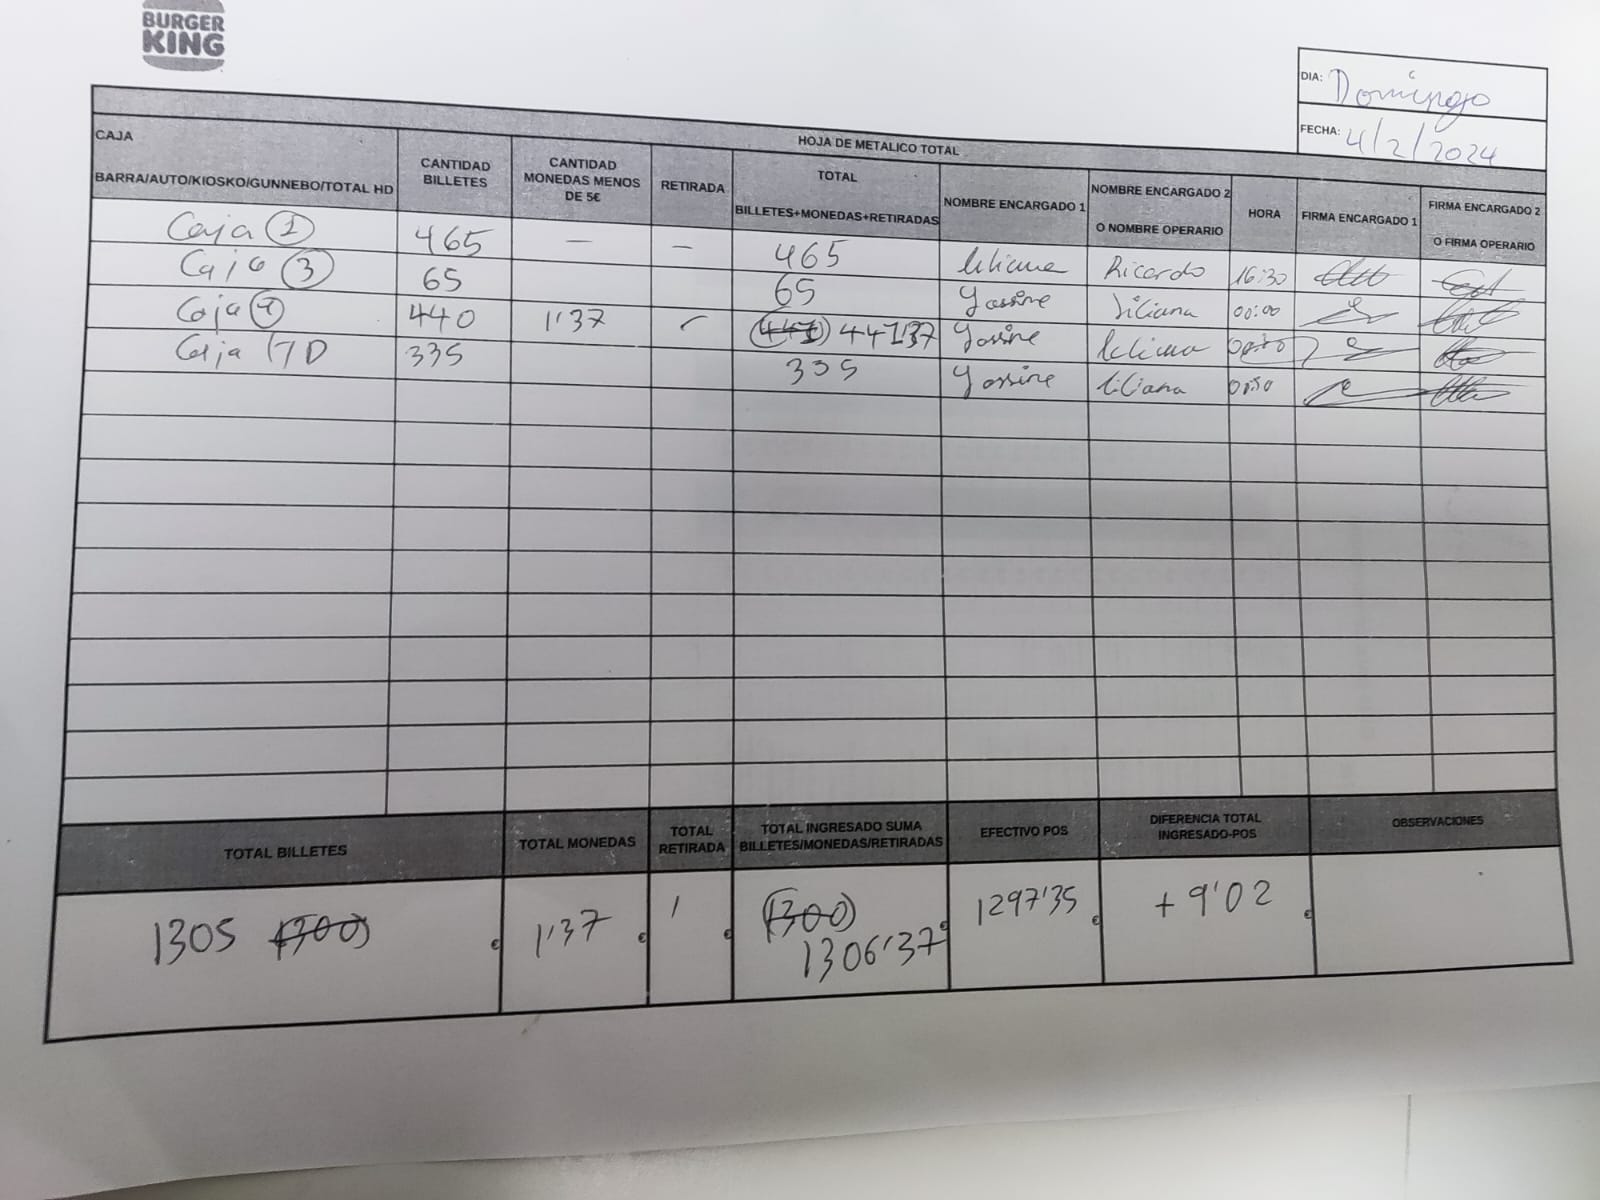 BURGER
KING
DIA: Domingo
FECHA: 4/2/2024
HOJA DE METALICO TOTAL
CAJA
BARRA/AUTO/KIOSKO/GUNNEBO/TOTAL HD
CANTIDAD
BILLETES
CANTIDAD
MONEDAS MENOS
DE 5€
RETIRADA
TOTAL
BILLETES+MONEDAS+RETIRADAS
NOMBRE ENCARGADO 1
NOMBRE ENCARGADO 2
O NOMBRE OPERARIO
HORA
FIRMA ENCARGADO 1
FIRMA ENCARGADO 2
O FIRMA OPERARIO
Caja 1 465 — — 465 liliana Ricardo 16:30
Caja 3 65 65 Yassine liliana 00:00
Caja 440 1'37 441'37 Yassine liliana
Caja 335 335 Yassine liliana
TOTAL BILLETES
TOTAL MONEDAS
TOTAL
RETIRADA
TOTAL INGRESADO SUMA
BILLETES/MONEDAS/RETIRADAS
EFECTIVO POS
DIFERENCIA TOTAL
INGRESADO-POS
OBSERVACIONES
1305 (1300) €
1'37 €
/ €
(1300) €
1306'37
1297'35 €
+ 9'02 €